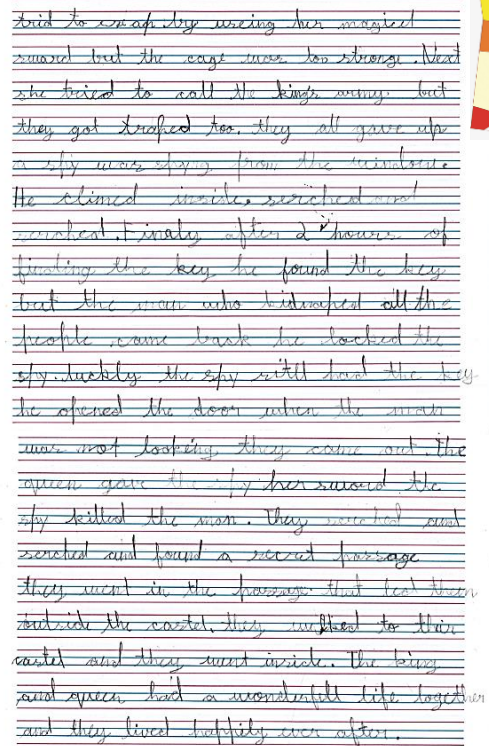 trid to excap by useing her magicel
sward but the cage was too stronge. Next
she tried to call the king's army but
they got traped too. they all gave up
a spy was spyng from the window.
He climed inside, serched and
serched. Finaly after 2 hours of
finding the key he found the key
but the man who kidnaped all the
people came back he locked the
spy. luckly the spy still had the key
he opened the door when the man
was not looking they came out. The
queen gave the spy her sword the
spy killed the man. They serched and
serched and found a secret passage
they went in the passage that led them
outside the castel. they walked to their
castel and they went inside. The king
and queen had a wonderfull life together
and they lived happily ever after.